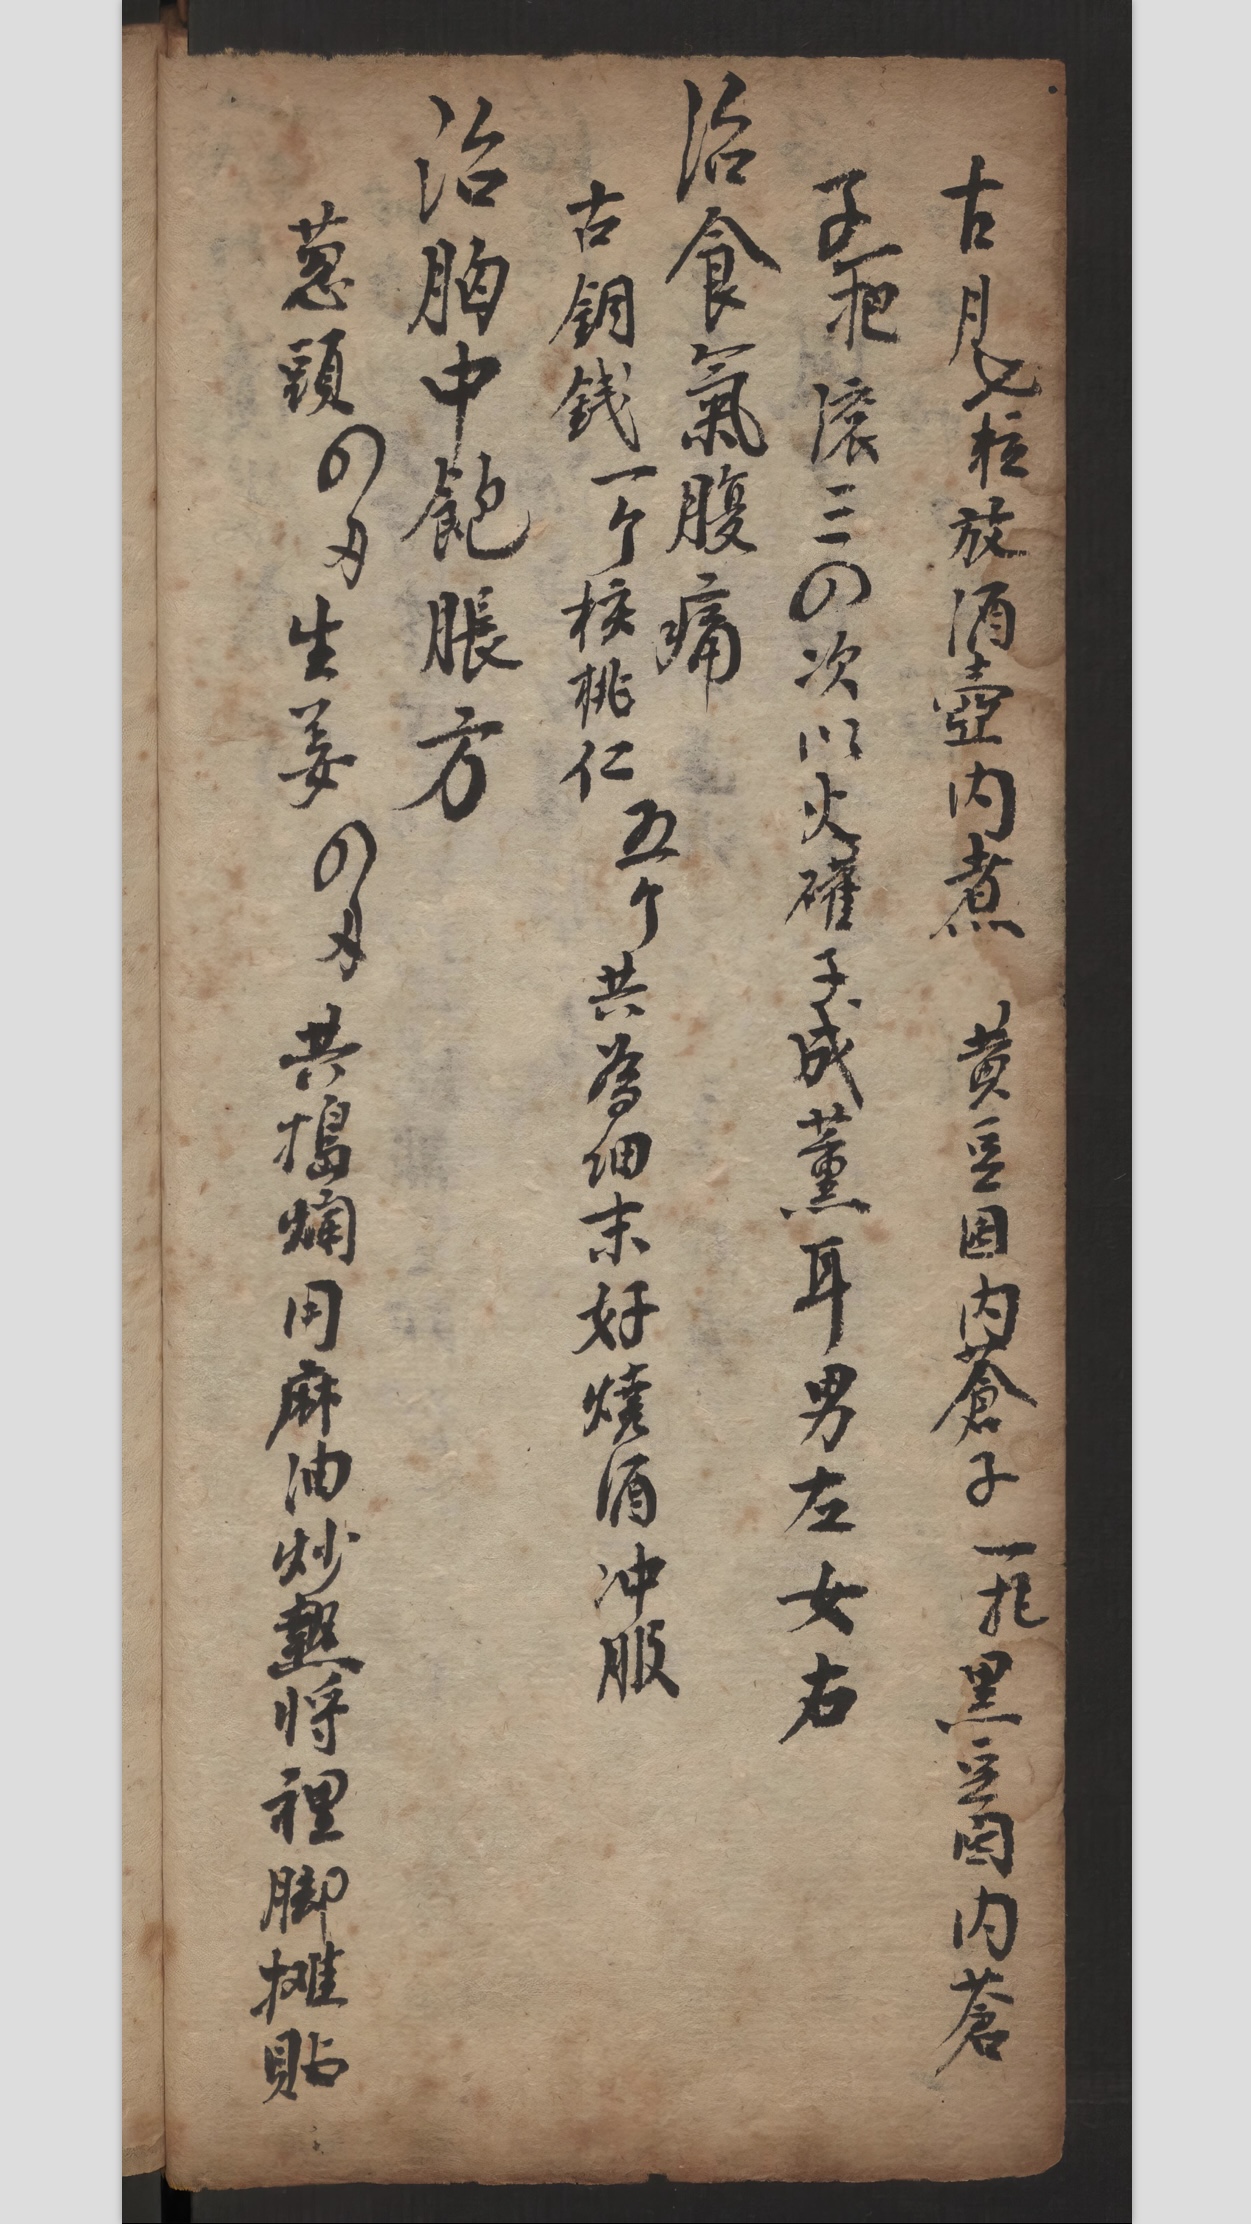 古月七粒放酒壺内煮 黄豆囤内蒼子一把黑豆囤内蒼
子一把滚三四次以火礶子成薰耳男左女右
治食氣腹痛
古銅銭一个核桃仁五个共為细末好燒酒冲服
治胸中飽脹方
葱頭四刄生姜四刄共搗爛用麻油炒熱将裡脚攤貼